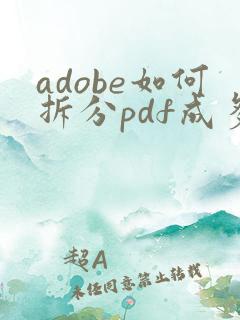 adobe如何
拆分pdf成多
超A
未经同意禁止转载